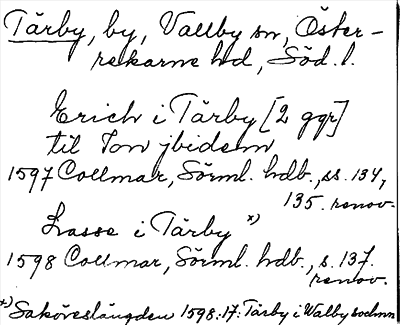 Tärby, by, Vallby sn, Öster-
rekarne hd, Söd. l.
Erich i Tärby [2 ggr]
til Ion jbidem
1597 Collmar, Sörml. hdb., ss. 134,
135. renov.
Lasse i Tärby x)
1598 Collmar, Sörml. hdb., s. 137.
renov.
x) Saköreslängden 1598:17: Tärby i Walby sochnn